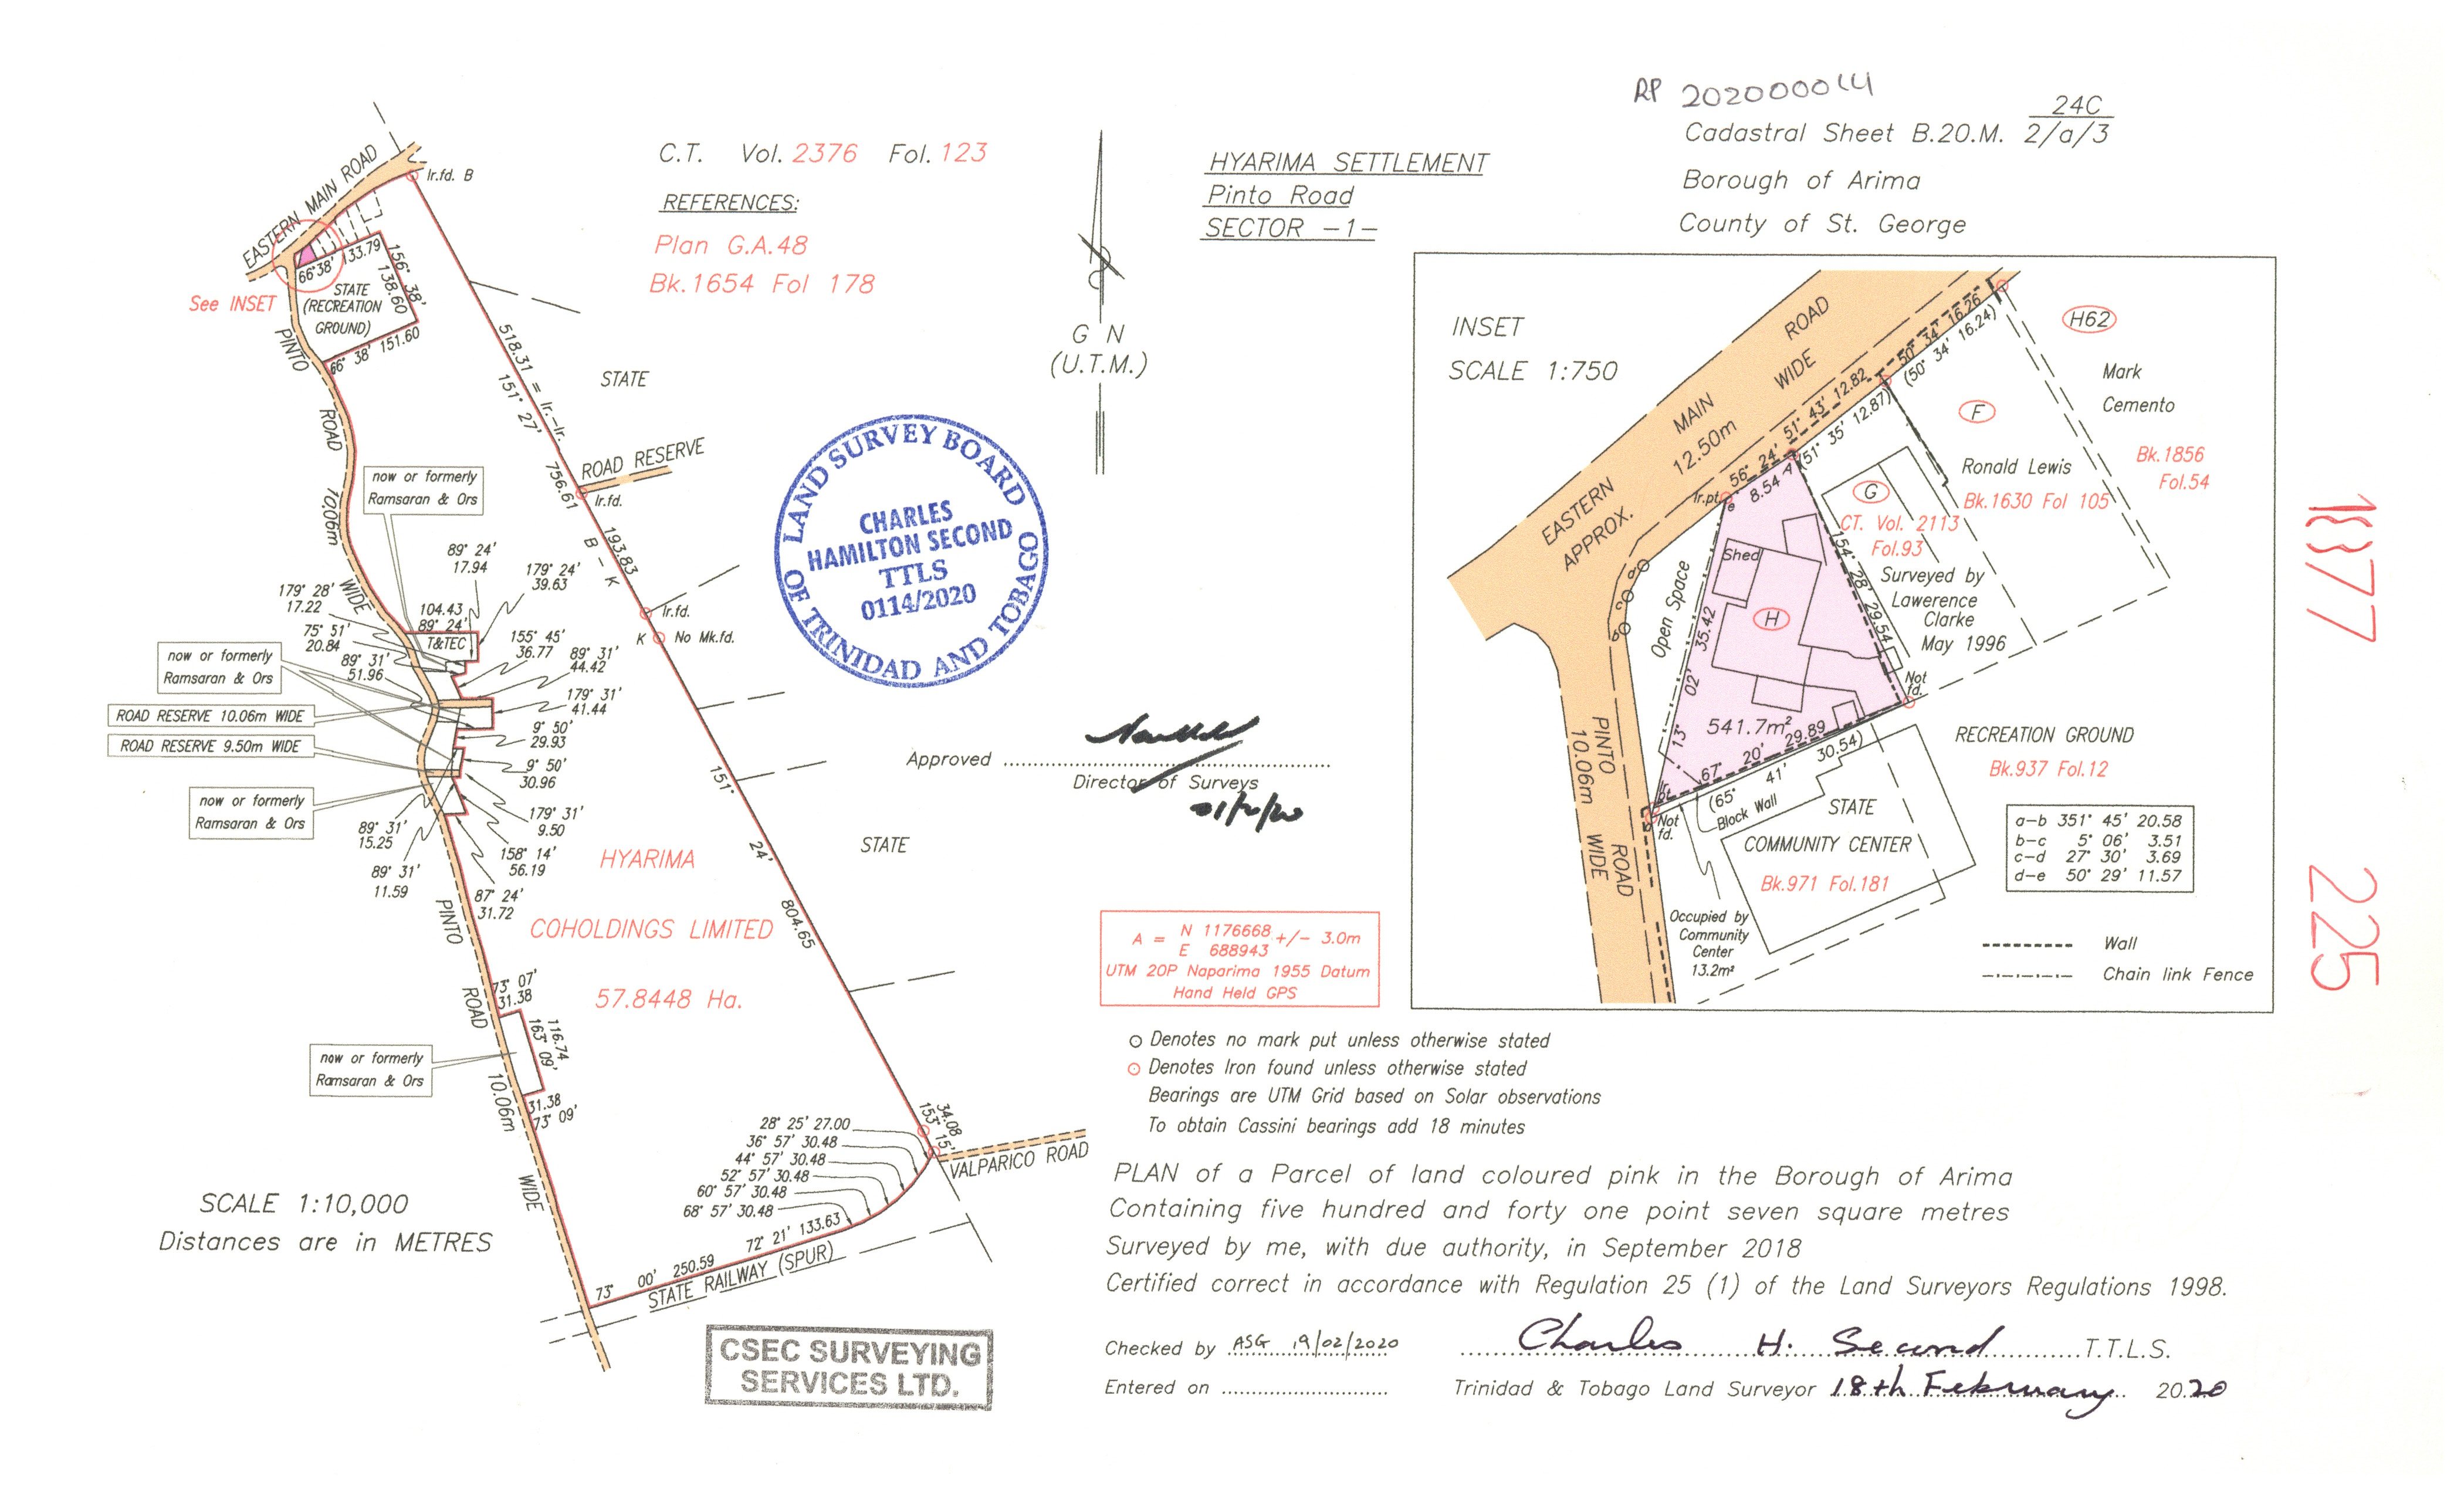 RP 2020000014
24C
Cadastral Sheet B.20.M. 2/a/3
Borough of Arima
County of St. George
C.T. Vol. 2376 Fol. 123
REFERENCES:
Plan G.A.48
Bk.1654 Fol 178
HYARIMA SETTLEMENT
Pinto Road
SECTOR -1-
G N
(U.T.M.)
EASTERN MAIN ROAD
Ir.fd. B
See INSET
66° 38' 133.79
156° 38'
138.60
STATE
(RECREATION
GROUND)
66° 38' 151.60
PINTO
ROAD
10.06m
WIDE
518.31 = Ir.-Ir.
151° 27'
756.61
B - K
193.83
STATE
ROAD RESERVE
Ir.fd.
Ir.fd.
K
No Mk.fd.
now or formerly
Ramsaran & Ors
89° 24'
17.94
179° 24'
39.63
179° 28'
17.22
104.43
89° 24'
T&TEC
75° 51'
20.84
155° 45'
36.77
89° 31'
44.42
89° 31'
51.96
now or formerly
Ramsaran & Ors
179° 31'
41.44
ROAD RESERVE 10.06m WIDE
ROAD RESERVE 9.50m WIDE
9° 50'
29.93
9° 50'
30.96
now or formerly
Ramsaran & Ors
179° 31'
9.50
89° 31'
15.25
158° 14'
56.19
89° 31'
11.59
87° 24'
31.72
151°
24'
804.65
STATE
HYARIMA
COHOLDINGS LIMITED
57.8448 Ha.
PINTO
ROAD
10.06m
WIDE
73° 07'
31.38
116.74
163° 09'
now or formerly
Ramsaran & Ors
31.38
73° 09'
34.08
153° 15'
28° 25' 27.00
36° 57' 30.48
44° 57' 30.48
52° 57' 30.48
60° 57' 30.48
68° 57' 30.48
72° 21' 133.63
73° 00' 250.59
STATE RAILWAY (SPUR)
VALPARICO ROAD
SCALE 1:10,000
Distances are in METRES
CSEC SURVEYING
SERVICES LTD.
LAND SURVEY BOARD
OF TRINIDAD AND TOBAGO
CHARLES
HAMILTON SECOND
TTLS
0114/2020
Approved
Director of Surveys
A = N 1176668 +/- 3.0m
E 688943
UTM 20P Naparima 1955 Datum
Hand Held GPS
INSET
SCALE 1:750
EASTERN MAIN ROAD
APPROX. 12.50m WIDE
50° 34' 16.26
(50° 34' 16.24)
51° 43' 12.82
(51° 35' 12.87)
56° 24'
8.54
A
Ir.pt.
e
d
c
b
a
H62
Mark
Cemento
Bk.1856
Fol.54
F
Ronald Lewis
Bk.1630 Fol 105
G
CT. Vol. 2113
Fol.93
Surveyed by
Lawerence
Clarke
May 1996
154° 28' 29.54
Shed
H
Open Space
13° 02' 35.42
541.7m²
67° 20' 29.89
(65° 41' 30.54)
Not
fd.
Not
fd.
Block Wall
PINTO ROAD
10.06m WIDE
RECREATION GROUND
Bk.937 Fol.12
STATE
COMMUNITY CENTER
Bk.971 Fol.181
Occupied by
Community
Center
13.2m²
a-b 351° 45' 20.58
b-c 5° 06' 3.51
c-d 27° 30' 3.69
d-e 50° 29' 11.57
Wall
Chain link Fence
1877 225
Denotes no mark put unless otherwise stated
Denotes Iron found unless otherwise stated
Bearings are UTM Grid based on Solar observations
To obtain Cassini bearings add 18 minutes
PLAN of a Parcel of land coloured pink in the Borough of Arima
Containing five hundred and forty one point seven square metres
Surveyed by me, with due authority, in September 2018
Certified correct in accordance with Regulation 25 (1) of the Land Surveyors Regulations 1998.
Checked by ASG 19/02/2020
Charles H. Second T.T.L.S.
Entered on
Trinidad & Tobago Land Surveyor 18th February 2020